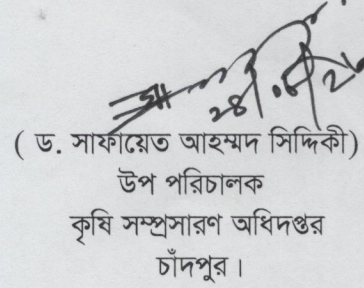 ( ড. সাফায়েত আহম্মদ সিদ্দিকী)
উপ পরিচালক
কৃষি সম্প্রসারণ অধিদপ্তর
চাঁদপুর।